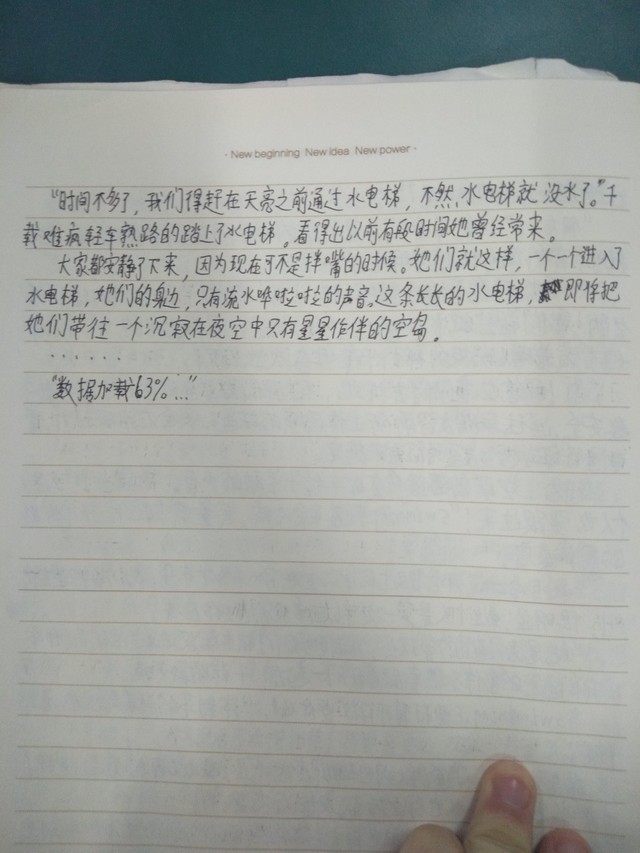 · New beginning New idea New power ·
“时间不多了，我们得赶在天亮之前通过水电梯，不然，水电梯就没水了。”千
载难疯轻车熟路的踏上了水电梯，看得出以前有段时间她曾经常来。
大家都安静了下来，因为现在可不是拌嘴的时候。她们就这样，一个一个进入了
水电梯，她们的身边，只有流水哗啦啦的声音。这条长长的水电梯，即将把
她们带往一个沉寂在夜空中只有星星作伴的空岛。
······
“数据加载63%...”